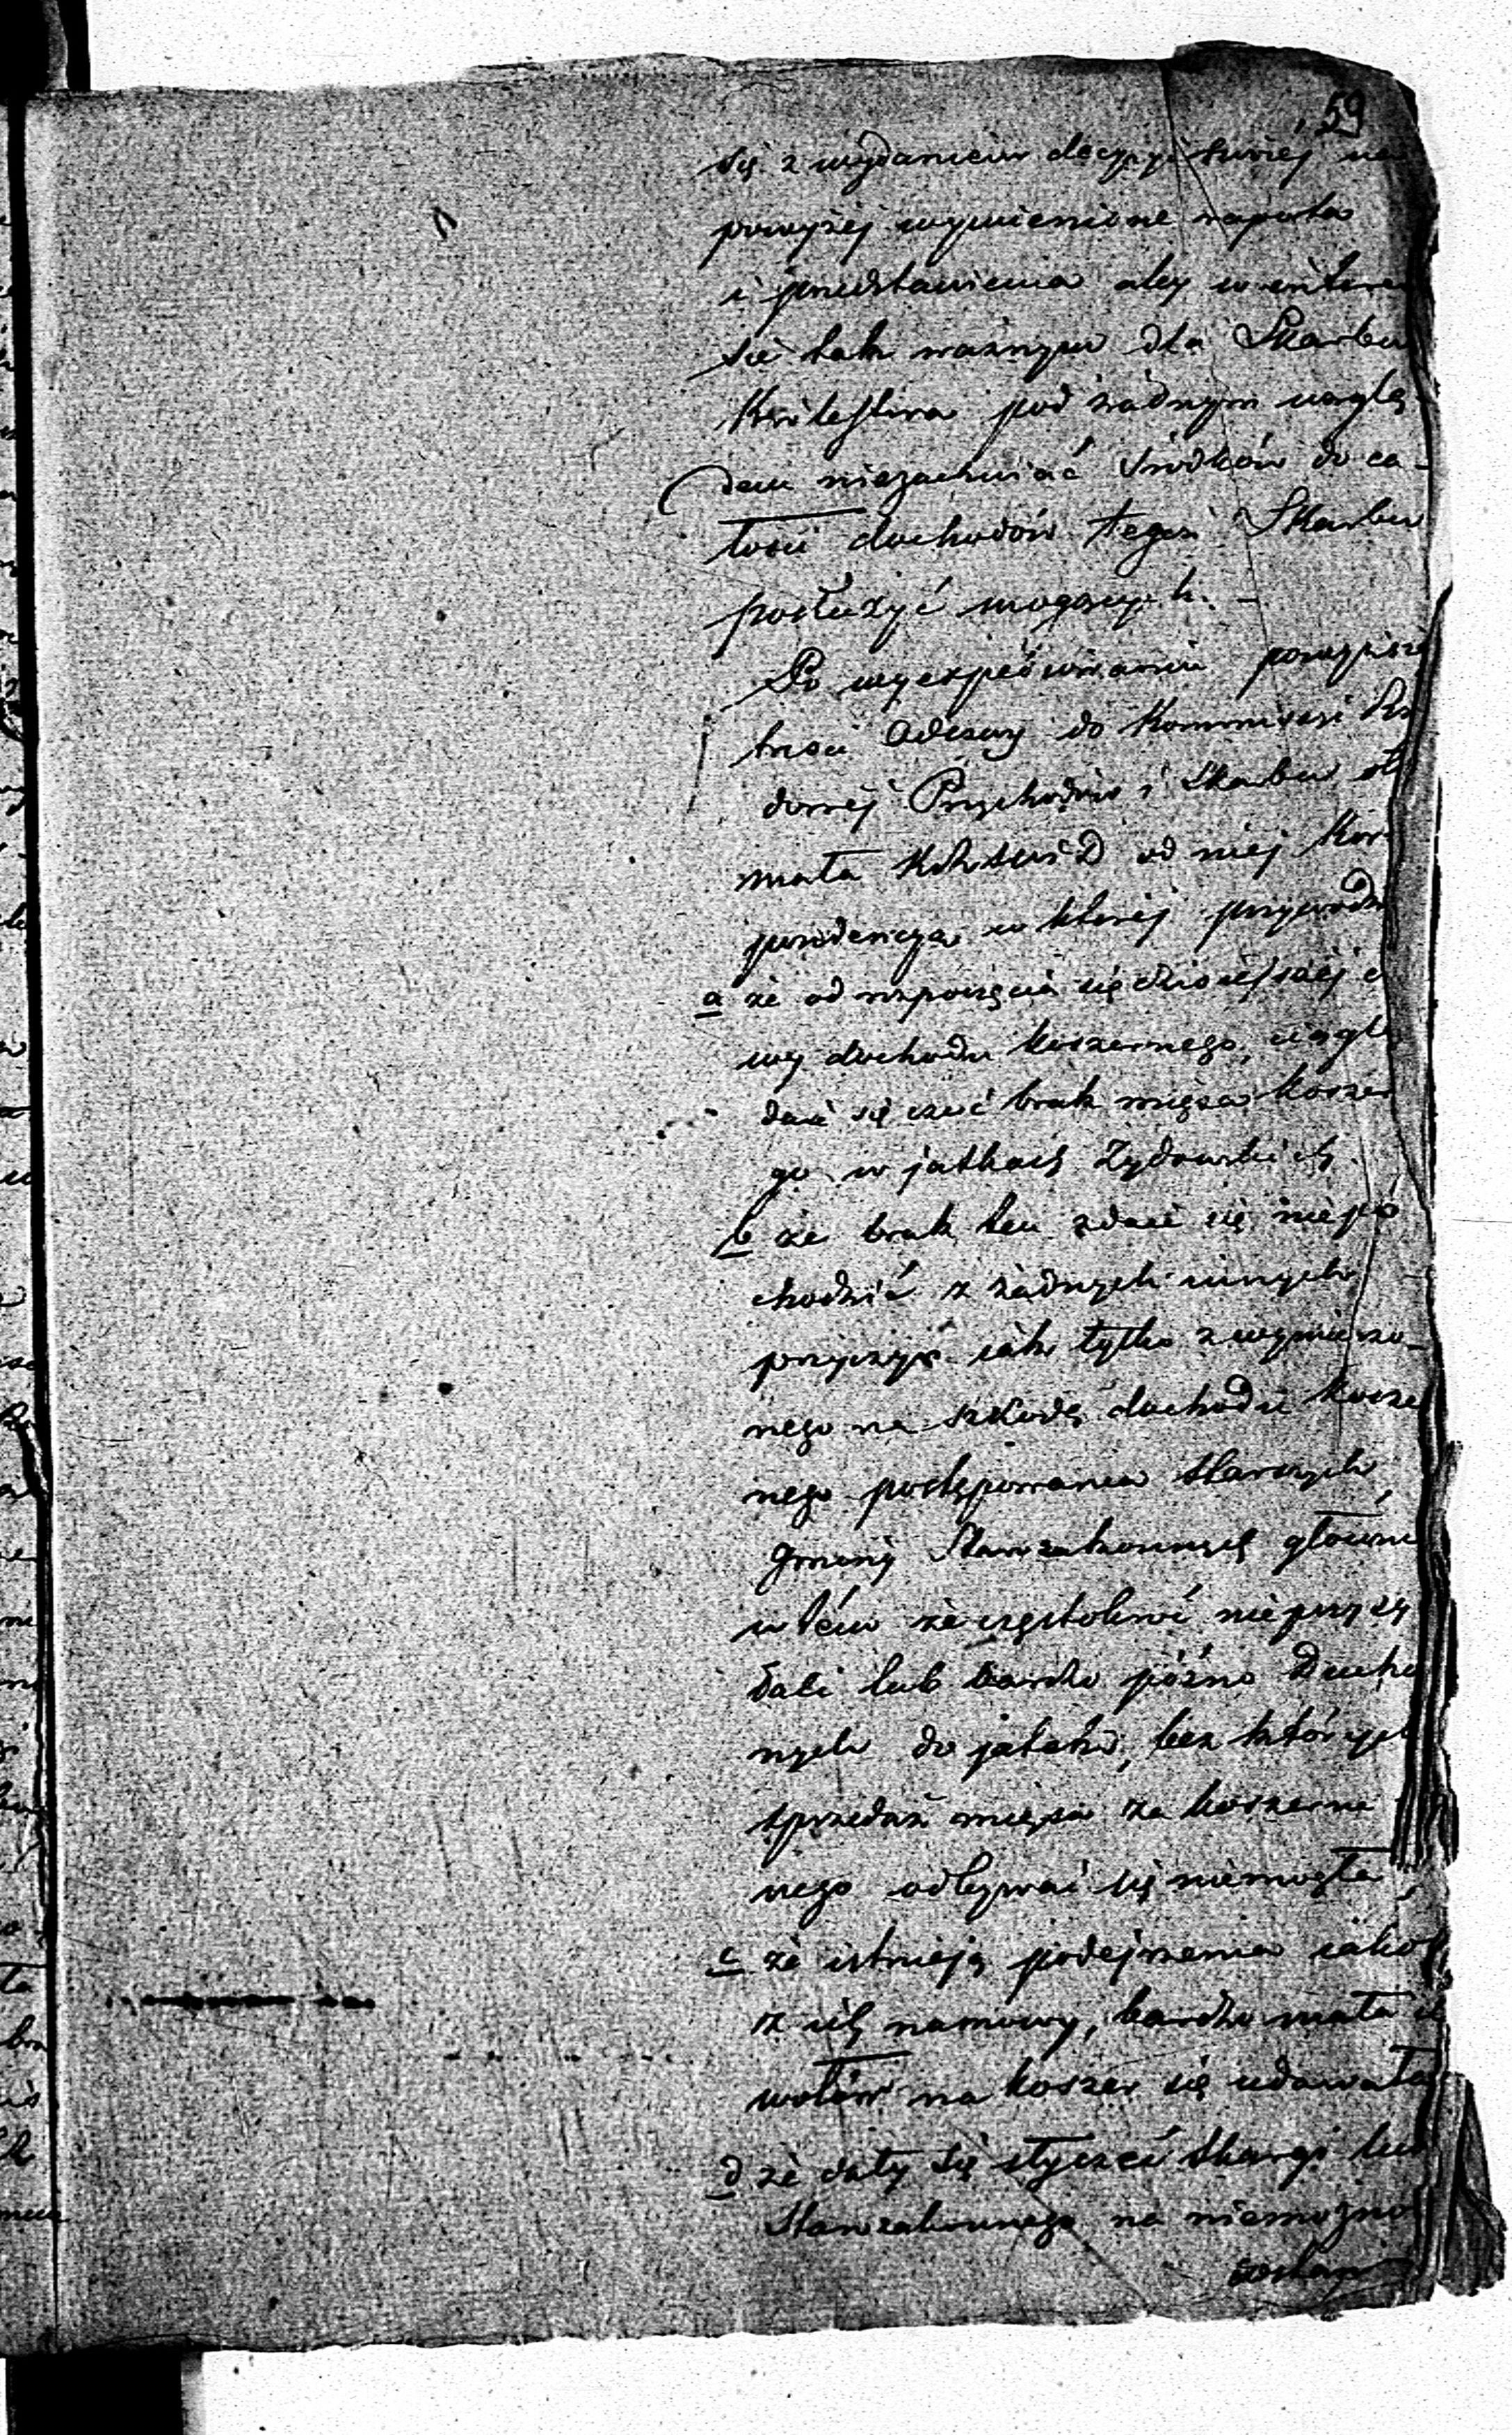 59
się z wydaniem decyzyi swéj na
powyżéj wymienione raporta
i przedstawienia aby w intere
sie tak ważnym dla Skarbu
Królestwa pod żadnym wzglę
dem niezachwiać środków do ca-
łości dochodów tegoż Skarbu
posłużyć mogących. -
Po wyexpediowaniu powyższe
treści Odezwy do Kommissyi Rzą
dowéj Przychodów i Skarbu ot
od niéj Kor
w któréj przywodzi
a że od rozpoczęcia się dzisiejszéj
wy dochodu koszernego, ciągle
daie się czuć brak mięsa koszer
go w jatkach Żydowskich.
b że brak ten zdaie się nie po
chodzić z żadnych innych
przyczyn iak tylko z wymierzo-
nego na szkodę dochodu kosze
nego postępowania starszych
gminy Starozakonnych głownie
w tém że częstokroć nie przyby
wali lub bardzo późno Ducho
nych do jatek, bez których
sprzedaż mięsa za koszerne
nego odbywać się niemogła
c że istnieją podejrzenia iakob
z ich namowy, bardzo mała il
wołów na koszer się udawała
d że dały się słyszeć skargi lud
Starozakonnego na niemożno